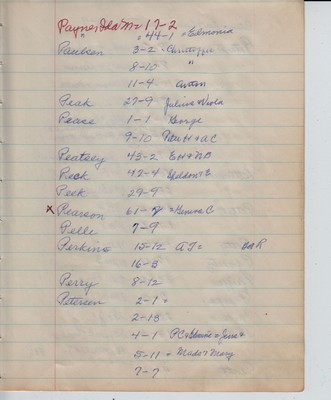 Paynes Ida Mc 17-2
" 44-1 Edmonia
Paulson 3-2 Christoffer
8-10 "
11-4 Anton
Peak 27-9 Julius & Viola
Pease 1-1 George
9-10 Peter H & A C
Peatsey 43-2 E H & N B
Peck 47-4 Sheldon E
Peek 29-9
x Pearson 61-7 Geneva C
Pelle 7-9
Perkins 15-12 A J
16-3
Perry 8-12
Petersen 2-1
2-13
4-1 P C &
5-11 Mads & Mary
7-7